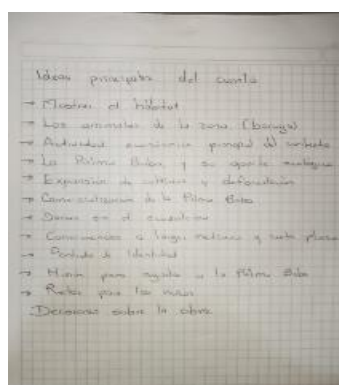 Ideas principales del cuento
→ Mostrar el hábitat
→ Los animales de la zona
→ Actividad económica principal del
→ La Palma Boba, y su aporte ecológico
→ Expansión de cultivos y deforestación
→ Comercialización de la Palma Boba
→ en el ecosistema
→ Consecuencias a largo, mediano y corto plazo
→ Perdida de Identidad
→ Misión para ayudar a la Palma Boba
→ Retos para los niños
Decisiones sobre la obra